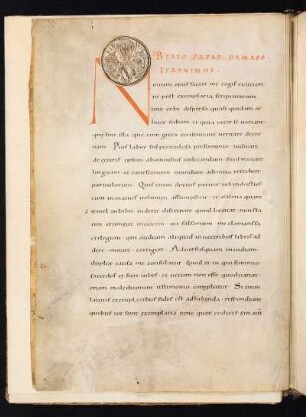 BEATO PAPAE DAMASO
IERONIMUS.
Nouum opus facere me cogis ex ueteri
ut post exemplaria scripturarum
toto orbe dispersa quasi quidam ar
biter sedeam et quia inter se uariant
quae sint illa quae cum greca consentiant ueritate decer
nam. Pius labor sed periculosa presumptio iudicare
de ceteris ipsum ab omnibus iudicandum senis mutare
linguam et canescentem mundum ad initia retrahere
paruulorum. Quis enim doctus pariter uel indoctus
cum in manus uolumen assumpserit et a saliua quam
semel imbibit uiderit discrepare quod lectitat non sta
tim erumpat in uocem me falsarium me clamans esse sa
crilegum qui audeam aliquid in ueteribus libris ad
dere mutare corrigere. Aduersus quam inuidiam
duplex causa me consolatur. Quod et tu qui summus
sacerdos es fieri iubes et uerum non esse quod uariat
etiam maledicorum testimonio comprobatur. Si enim
latinis exemplaribus fides est adhibenda respondeant
quibus tot sunt exemplaria pene quot codices sin aut